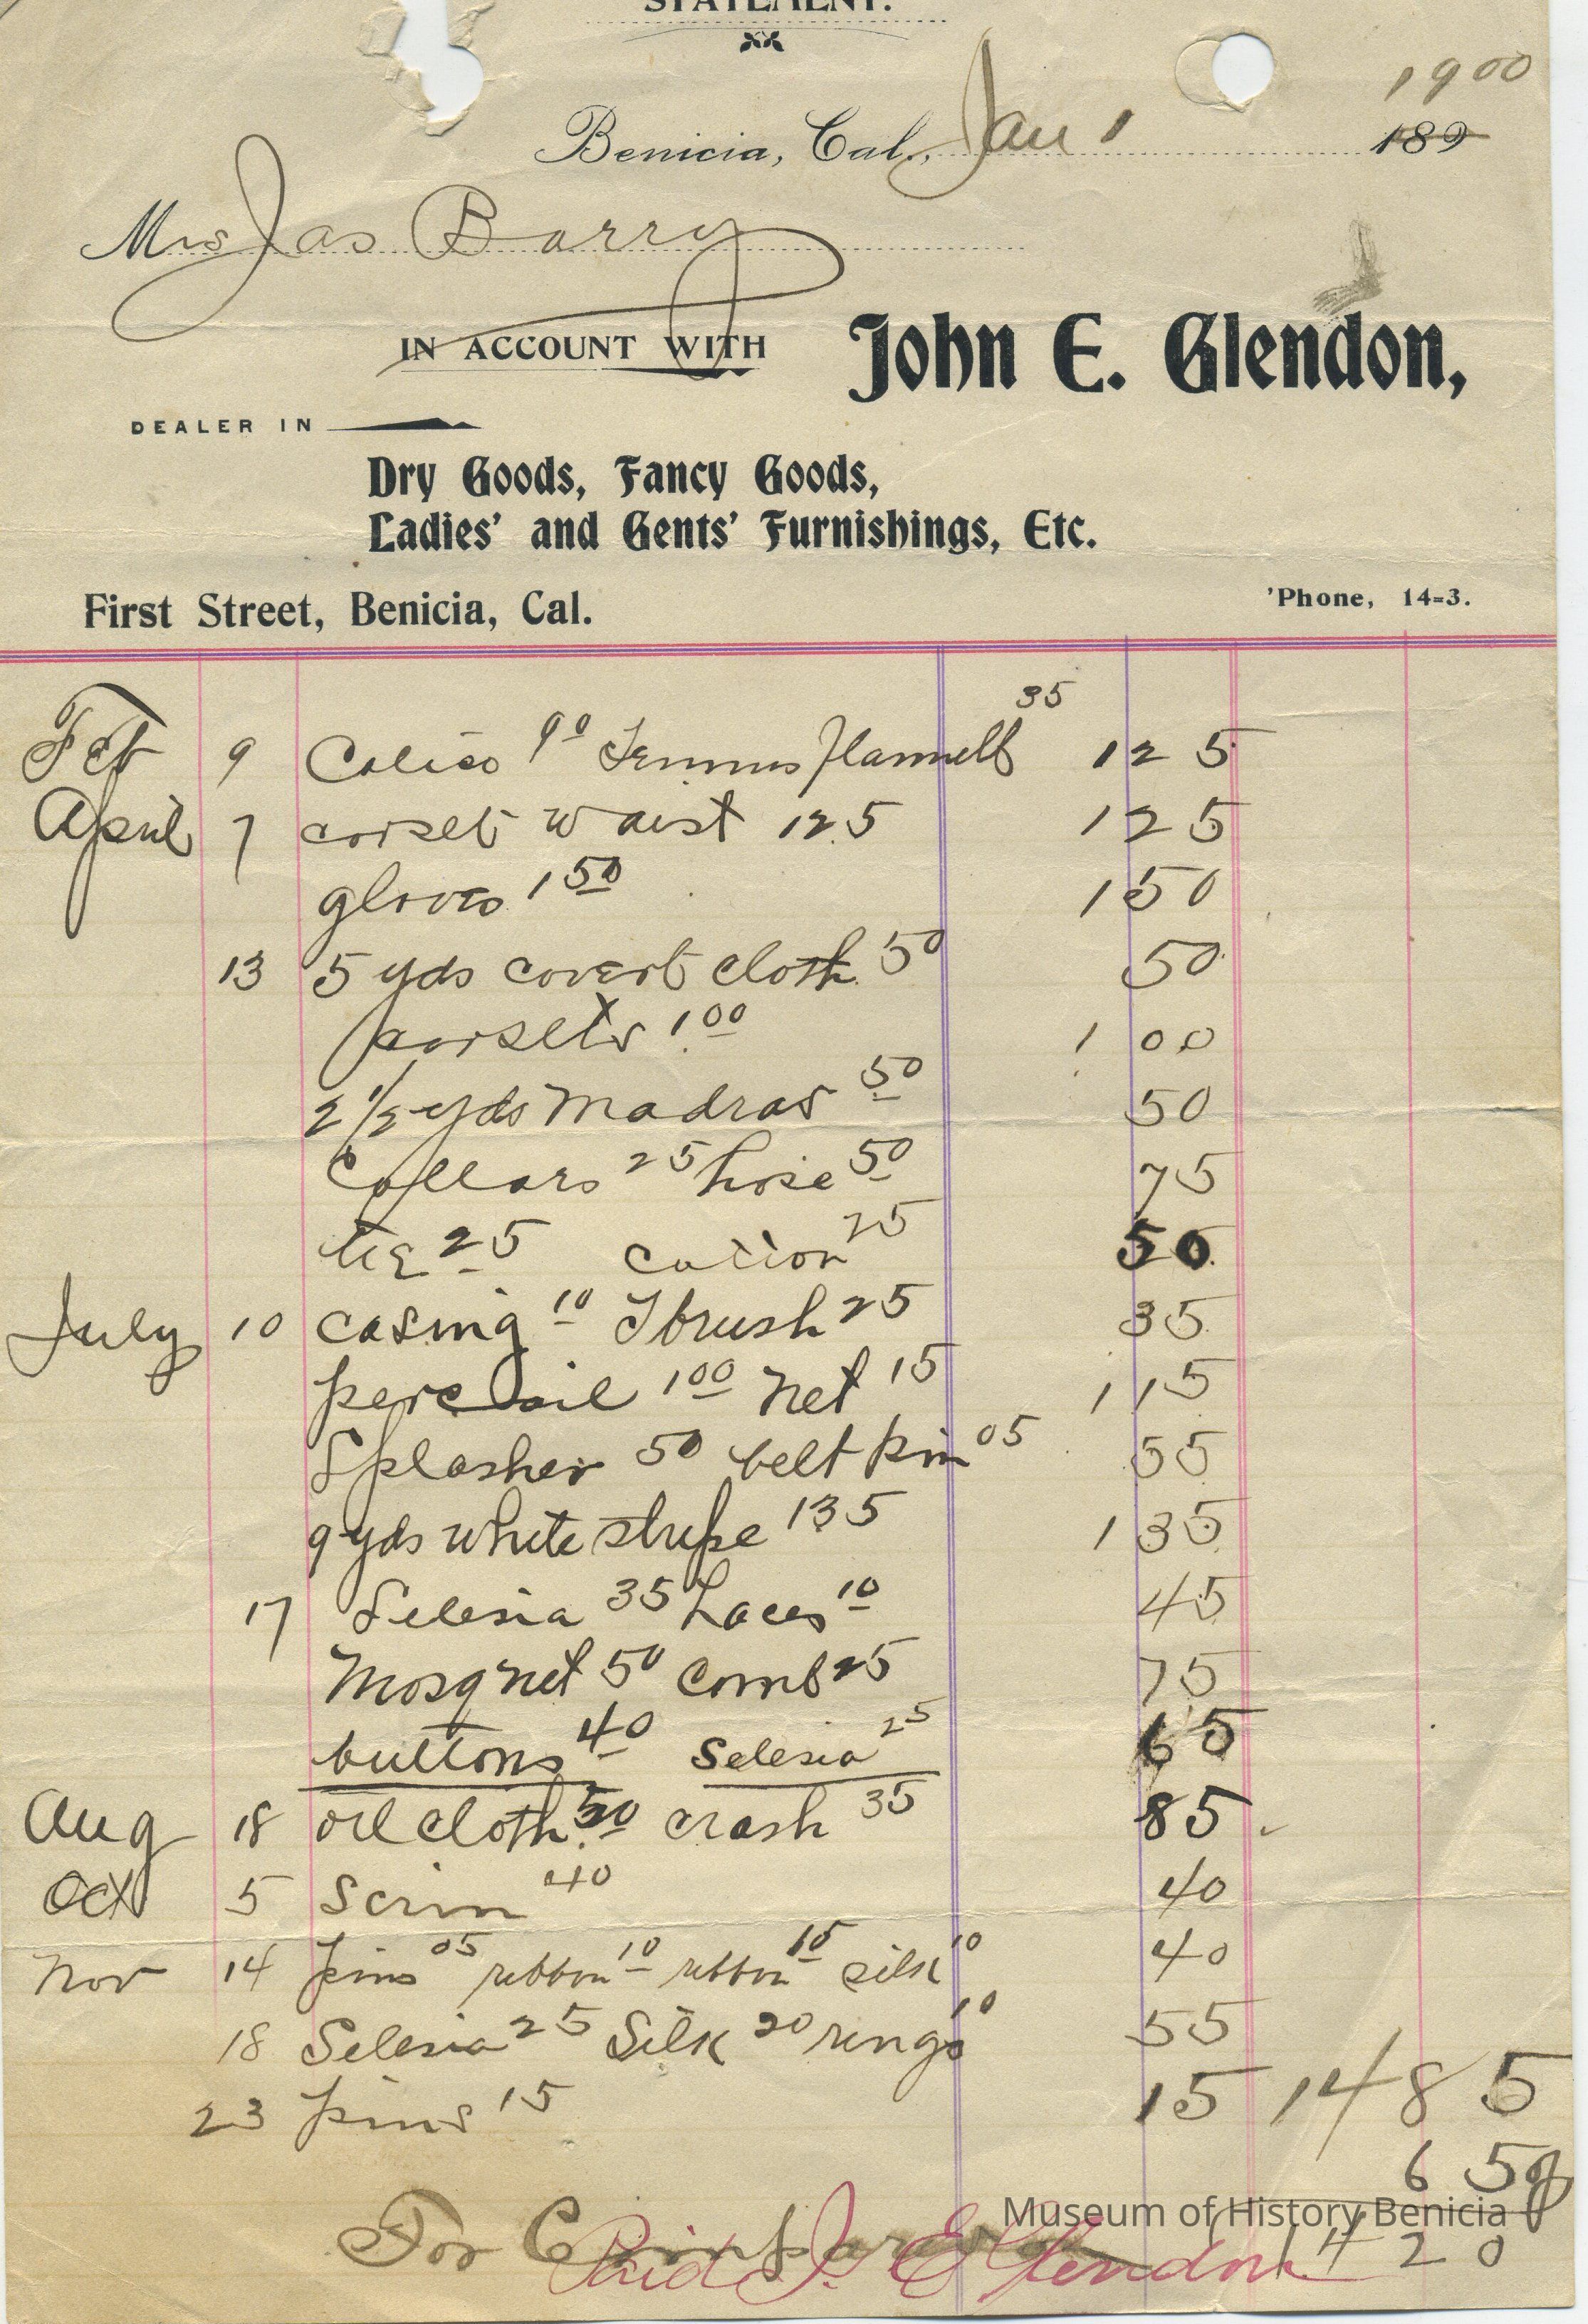 STATEMENT.
1900
Benicia, Cal., Jan 1 189
Mrs Jas Barry
IN ACCOUNT WITH John E. Glendon,
DEALER IN
Dry Goods, Fancy Goods,
Ladies' and Gents' Furnishings, Etc.
First Street, Benicia, Cal. 'Phone, 14-3.
Feb 9 Calico 90 Tennis flannell 35 1 25
April 7 corset waist 125 1 25
gloves 1 50 1 50
13 5 yds covert cloth 50 50
corsets 1 00 1 00
2 1/2 yds madras 50 50
Collars 25 hose 50 75
tie 25 25 50
July 10 casing 10 T brush 25 35
percail 1 00 net 15 1 15
Splasher 50 belt pin 05 55
9 yds white stripe 135 1 35
17 Selesia 35 Laces 10 45
Mosq net 50 comb 25 75
buttons 40 Selesia 25 65
Aug 18 oil cloth 50 crash 35 85
Oct 5 Scrim 40 40
Nov 14 pins 05 ribbon 10 ribbon 15 silk 10 40
18 Selesia 25 Silk 20 rings 10 55
23 pins 15 15 14 85
65
Museum of History Benicia
For
Paid J. E Glendon 14 20